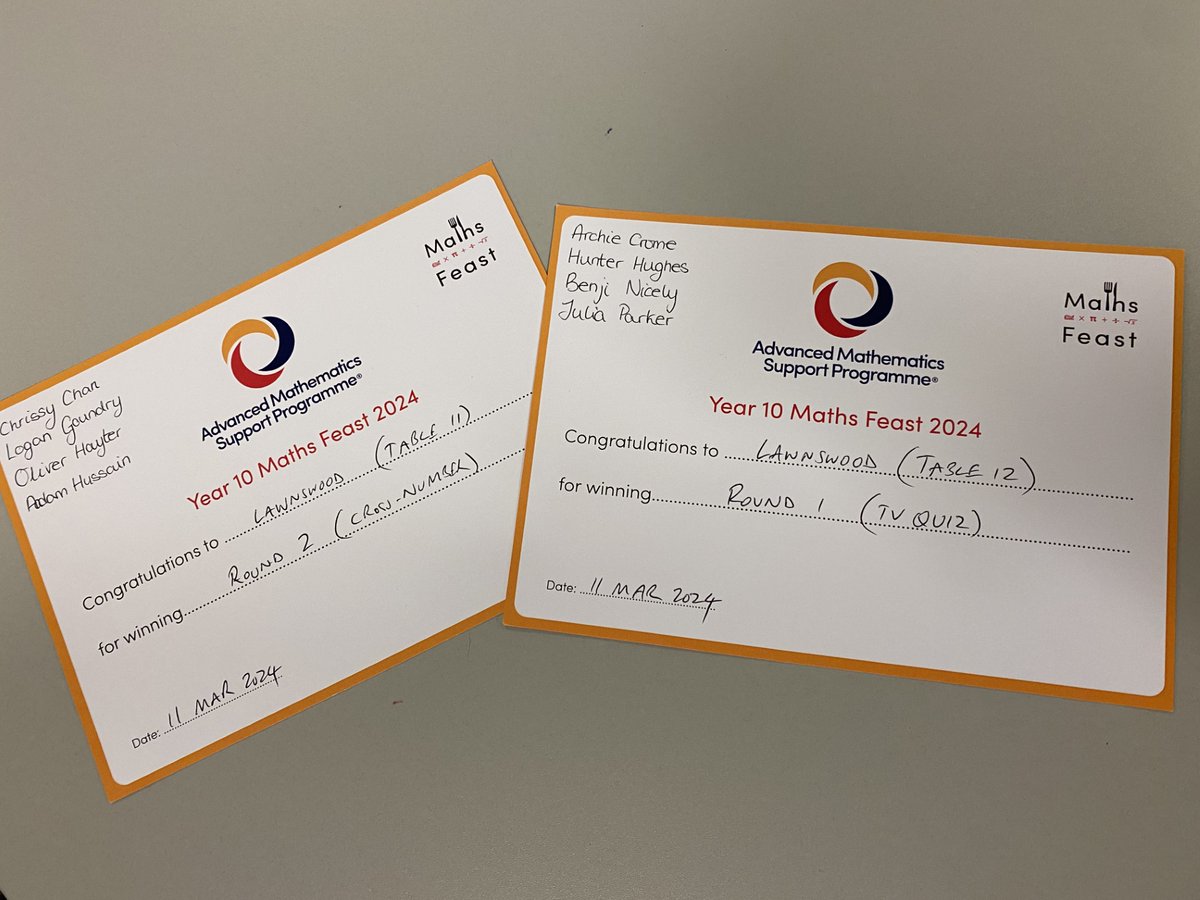 Chrissy Chan
Logan Goundry
Oliver Hayter
Adam Hussain
Maths
Feast
Advanced Mathematics
Support Programme®
Year 10 Maths Feast 2024
Congratulations to LAWNSWOOD (TABLE 11)
for winning ROUND 2 (CROSS-NUMBER)
Date: 11 MAR 2024
Archie Crome
Hunter Hughes
Benji Nicely
Julia Parker
Maths
Feast
Advanced Mathematics
Support Programme®
Year 10 Maths Feast 2024
Congratulations to LAWNSWOOD (TABLE 12)
for winning ROUND 1 (TV QUIZ)
Date: 11 MAR 2024